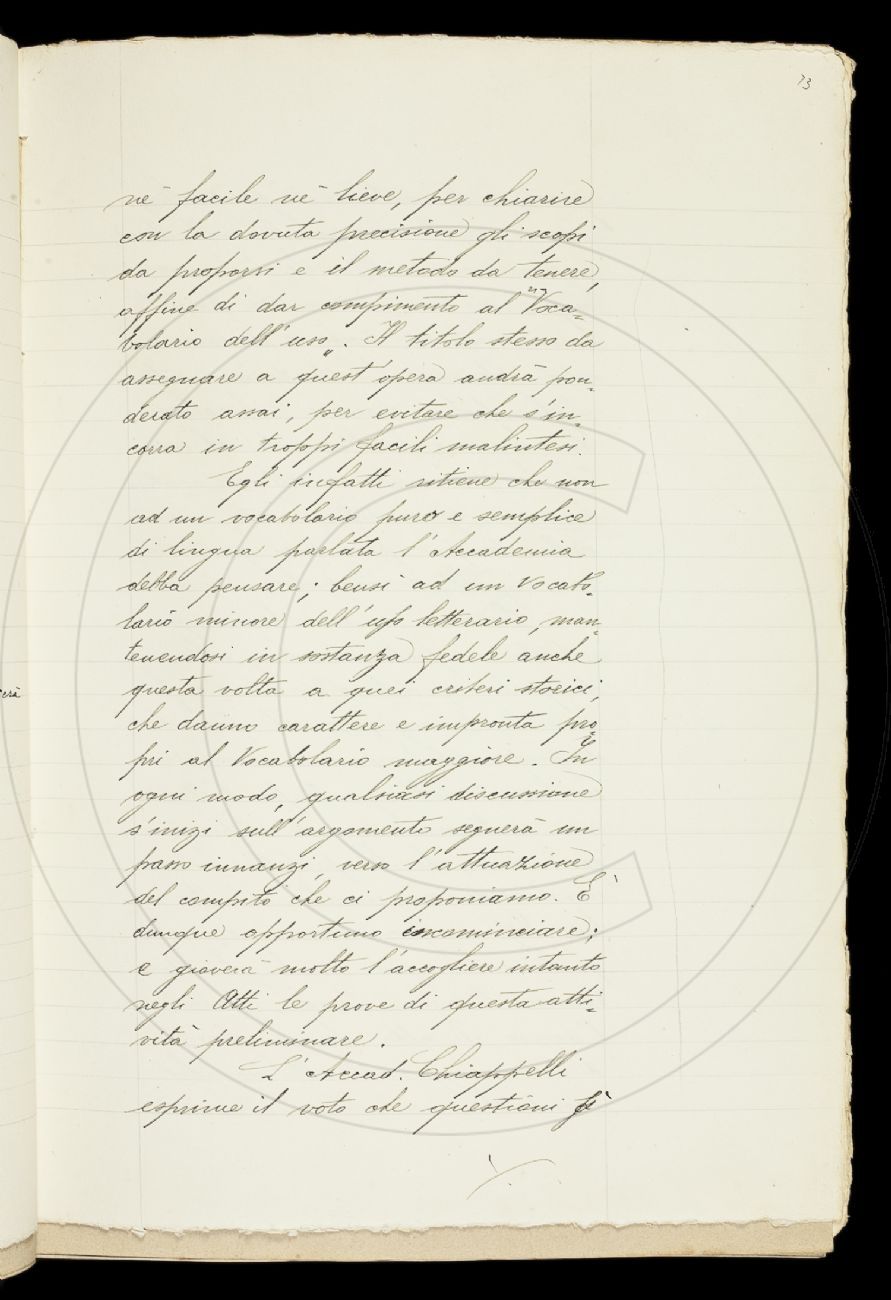 73
nè facile nè lieve, per chiarire
con la dovuta precisione gli scopi
da proporsi e il metodo da tenere,
affine di dar compimento al "Voca-
bolario dell'uso". Il titolo stesso da
assegnare a quest'opera andrà pon-
derato assai, per evitare che s'in-
corra in troppi facili malintesi.
Egli infatti ritiene che non
ad un vocabolario puro e semplice
di lingua parlata l'Accademia
debba pensare; bensi ad un Vocabo-
lario minore dell'uso letterario, man-
tenendosi in sostanza fedele anche
questa volta a quei criteri storici,
che danno carattere e impronta pro-
pri al Vocabolario maggiore. In
ogni modo, qualsiasi discussione
s'inizi sull'argomento segnerà un
passo innanzi, verso l'attuazione
del compito che ci proponiamo. È
dunque opportuno incominciare;
e gioverà molto l'accogliere intanto
negli Atti le prove di questa atti-
vità preliminare.
L'Accad. Chiappelli
esprime il voto che questioni